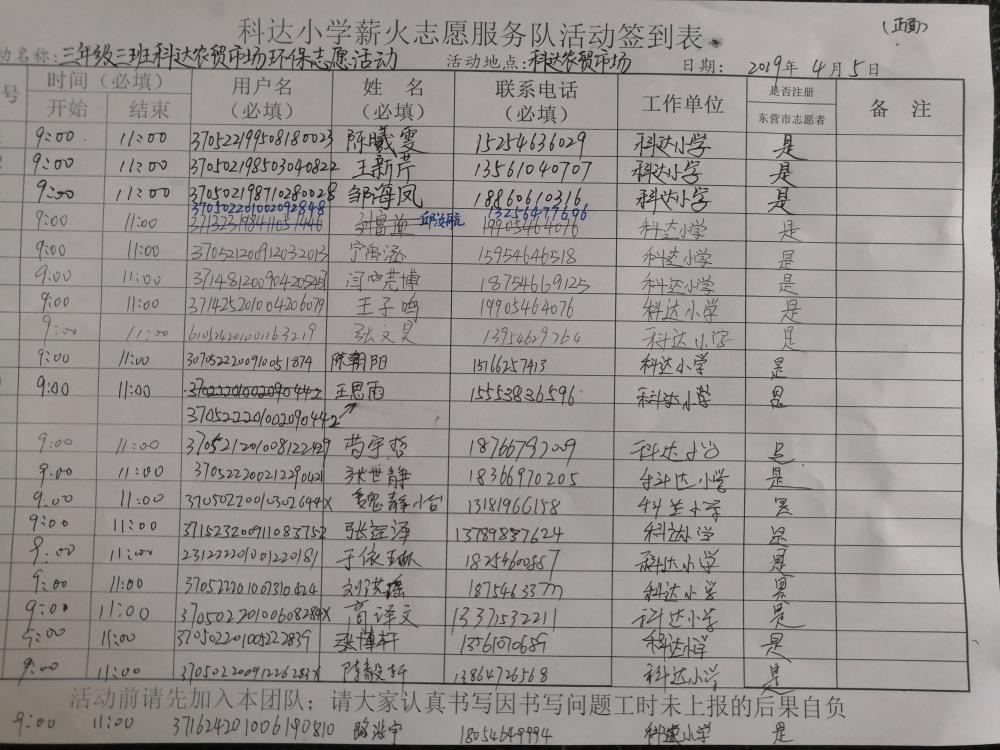 科达小学薪火志愿服务队活动签到表 (正面)
动名称: 三年级三班科达农贸市场环保志愿活动 活动地点: 科达农贸市场 日期: 2019年 4月5日
号 时间（必填） 用户名 姓 名 联系电话 工作单位 是否注册 备 注
开始 结束 （必填） （必填） （必填） 东营市志愿者
9:00 11:00 370522199508180023 陈曦雯 15254636029 科达小学 是
9:00 11:00 370502198503040822 王新芹 13561040707 科达小学 是
9:00 11:00 370502198710280028 邹海凤 18860610316 科达小学 是
370502201002092848 13256477696
9:00 11:00 371323198411051446 19905464076 科达小学 是
9:00 11:00 370521200912032013 15954646518 科达小学 是
9:00 11:00 18754669125 科达小学 是
9:00 11:00 371425201004206079 王子鸣 19905464076 科达小学 是
9:00 11:00 张文昊 13954629764 科达小学 是
9:00 11:00 307052220091051874 陈朝阳 15166257413 科达小学 是
9:00 11:00 王思雨 15553836596 科达小学 是
370522201002090442
9:00 11:00 370521201008122429 18766797009 科达小学 是
9:00 11:00 张世静 18366970205 科达小学 是
9:00 11:00 37050220010302644X 13181966158 科达小学 是
9:00 11:00 371523200911083752 张运泽 科达小学 是
9:00 11:00 231222201001220181 科达小学 是
9:00 11:00 370522201007310424 刘洪瑶 科达小学 是
9:00 11:00 37050220100608284X 高译文 13371532211 科达小学 是
9:00 11:00 370502201005222839 张博轩 13561010659 科达小学 是
9:00 11:00 37050220091226283X 13864726568 科达小学 是
活动前请先加入本团队；请大家认真书写因书写问题工时未上报的后果自负
9:00 11:00 371624201006190810 18054649994 科达小学 是